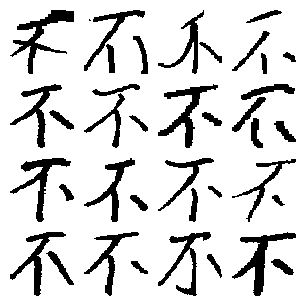 不 不 不 不
不 不 不 不
不 不 不 不
不 不 不 不